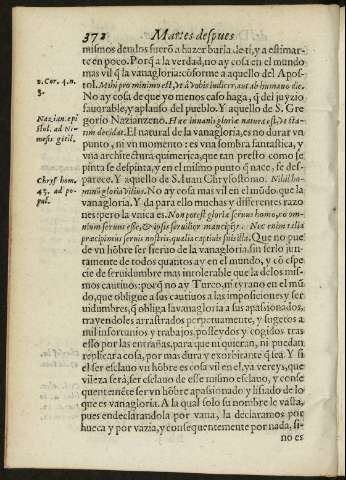 372 Martes despues
mismos deudos fuerõ a hazer burla de ti, y a estimar-
te en poco. Porq̃ a la verdad, no ay cosa en el mundo
mas vil q̃ la vanagloria: cõforme a aquello del Apos-
2. Cor. 4. n.
3.
tol. Mihi pro minimo est, vt à vobis iudicer, aut ab humano die.
No ay cosa de que yo menos caso haga, q̃ del juyzio
fauorable, y aplauso del pueblo. Y aquello de S. Gre-
Nazian. epi
stol. ad Ne-
mesiũ gẽtil.
gorio Nazianzeno. Hæc innanis gloriæ natura est, vt sta-
tim decidat. El natural de la vanagloria, es no durar vn
punto, ni vn momento: es vna sombra fantastica, y
vna architectura quimerica, que tan presto como se
pinta se despinta, y en el mismo punto q̃ nace, se des-
parece. Y aquello de S. Iuan Chrysostomo. Nihil ho-
Chrys hom.
43. ad po-
pul.
minũ gloria vilius. No ay cosa mas vil en el mũdo, que la
vanagloria. Y da para ello muchas y differentes razo
nes: pero la vnica es. Non potest gloriæ seruus homo, vt om-
nium seruus esse, & ipsis seruilior mancipijs. Nec enim talia
præcipimus seruis nostris, qualia captiuis suis illa. Que no pue
de vn hõbre ser sieruo de la vanagloria, sin serlo jun-
tamente de todos quantos ay en el mundo, y cõ espe
cie de seruidumbre mas intolerable que la de los mis-
mos cautiuos: porq̃ no ay Turco, ni tyrano en el mũ
do, que obligue a sus cautiuos a las imposiciones y ser
uidumbres, q̃ obliga la vanagloria a sus apasionados,
trayendolos arrastrados perpetuamente, y sugetos a
mil infortunios y trabajos, posseydos y cogidos tras
esso por las entrañas, para que ni quieran, ni puedan
replicar a cosa, por mas dura y exorbitante q̃ sea. Y si
el ser esclauo vn hõbre es cosa vil en el, ya vereys, que
vileza serà, ser esclauo de esse mismo esclauo, y conse
quentemẽte ser vn hõbre apasionado y lisiado de lo
que es vanagloria. A la qual solo su nombre le vasta,
pues en declarandola por vana, la declaramos por
hueca y por vazia, y consequentemente por nada, si-
no es